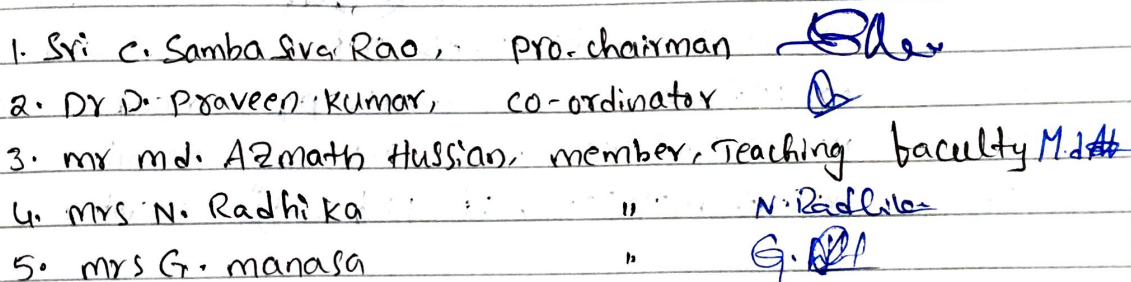 1. Sri C. Samba Siva Rao, pro-chairman
2. Dr D. Praveen Kumar, co-ordinator
3. mr md. Azmath Hussian, member, Teaching faculty M.d
4. mrs N. Radhika " N. Radhika
5. mrs G. manasa " G.